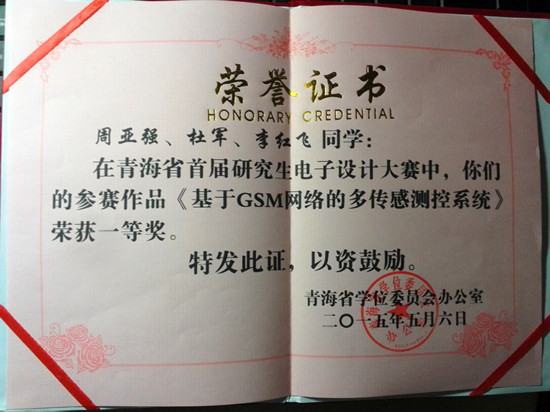 荣誉证书
HONORARY CREDENTIAL
周亚强、杜军、李红飞同学：
在青海省首届研究生电子设计大赛中，你们
的参赛作品《基于GSM网络的多传感测控系统》
荣获一等奖。
特发此证，以资鼓励。
青海省学位委员会办公室
二〇一五年五月六日